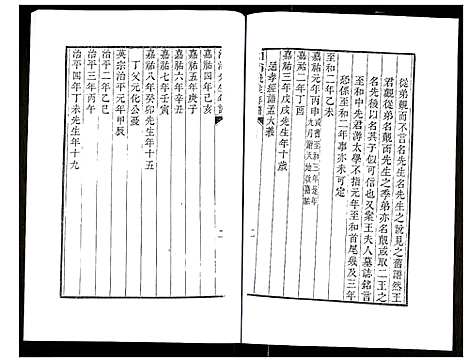 從弟覿而不言名先生名先生之說見之舊譜然王
君覿從弟名覿而先生之季弟亦名覿或取二王之
名先後以名其子似可信也又案王夫人墓誌銘言
至和中先君游太學不指元年至和首尾幾及三年
恐係至和二年事亦未可定
至和二年乙未
嘉祐元年丙申
嘉祐二年丁酉
嘉祐三年戊戌先生年十歲
通孝經語孟大義
嘉祐四年己亥
嘉祐五年庚子
嘉祐六年辛丑
嘉祐七年壬寅
嘉祐八年癸卯先生年十五
丁父元化公憂
英宗治平元年甲辰
治平二年乙巳
治平三年丙午
治平四年丁未先生年十九